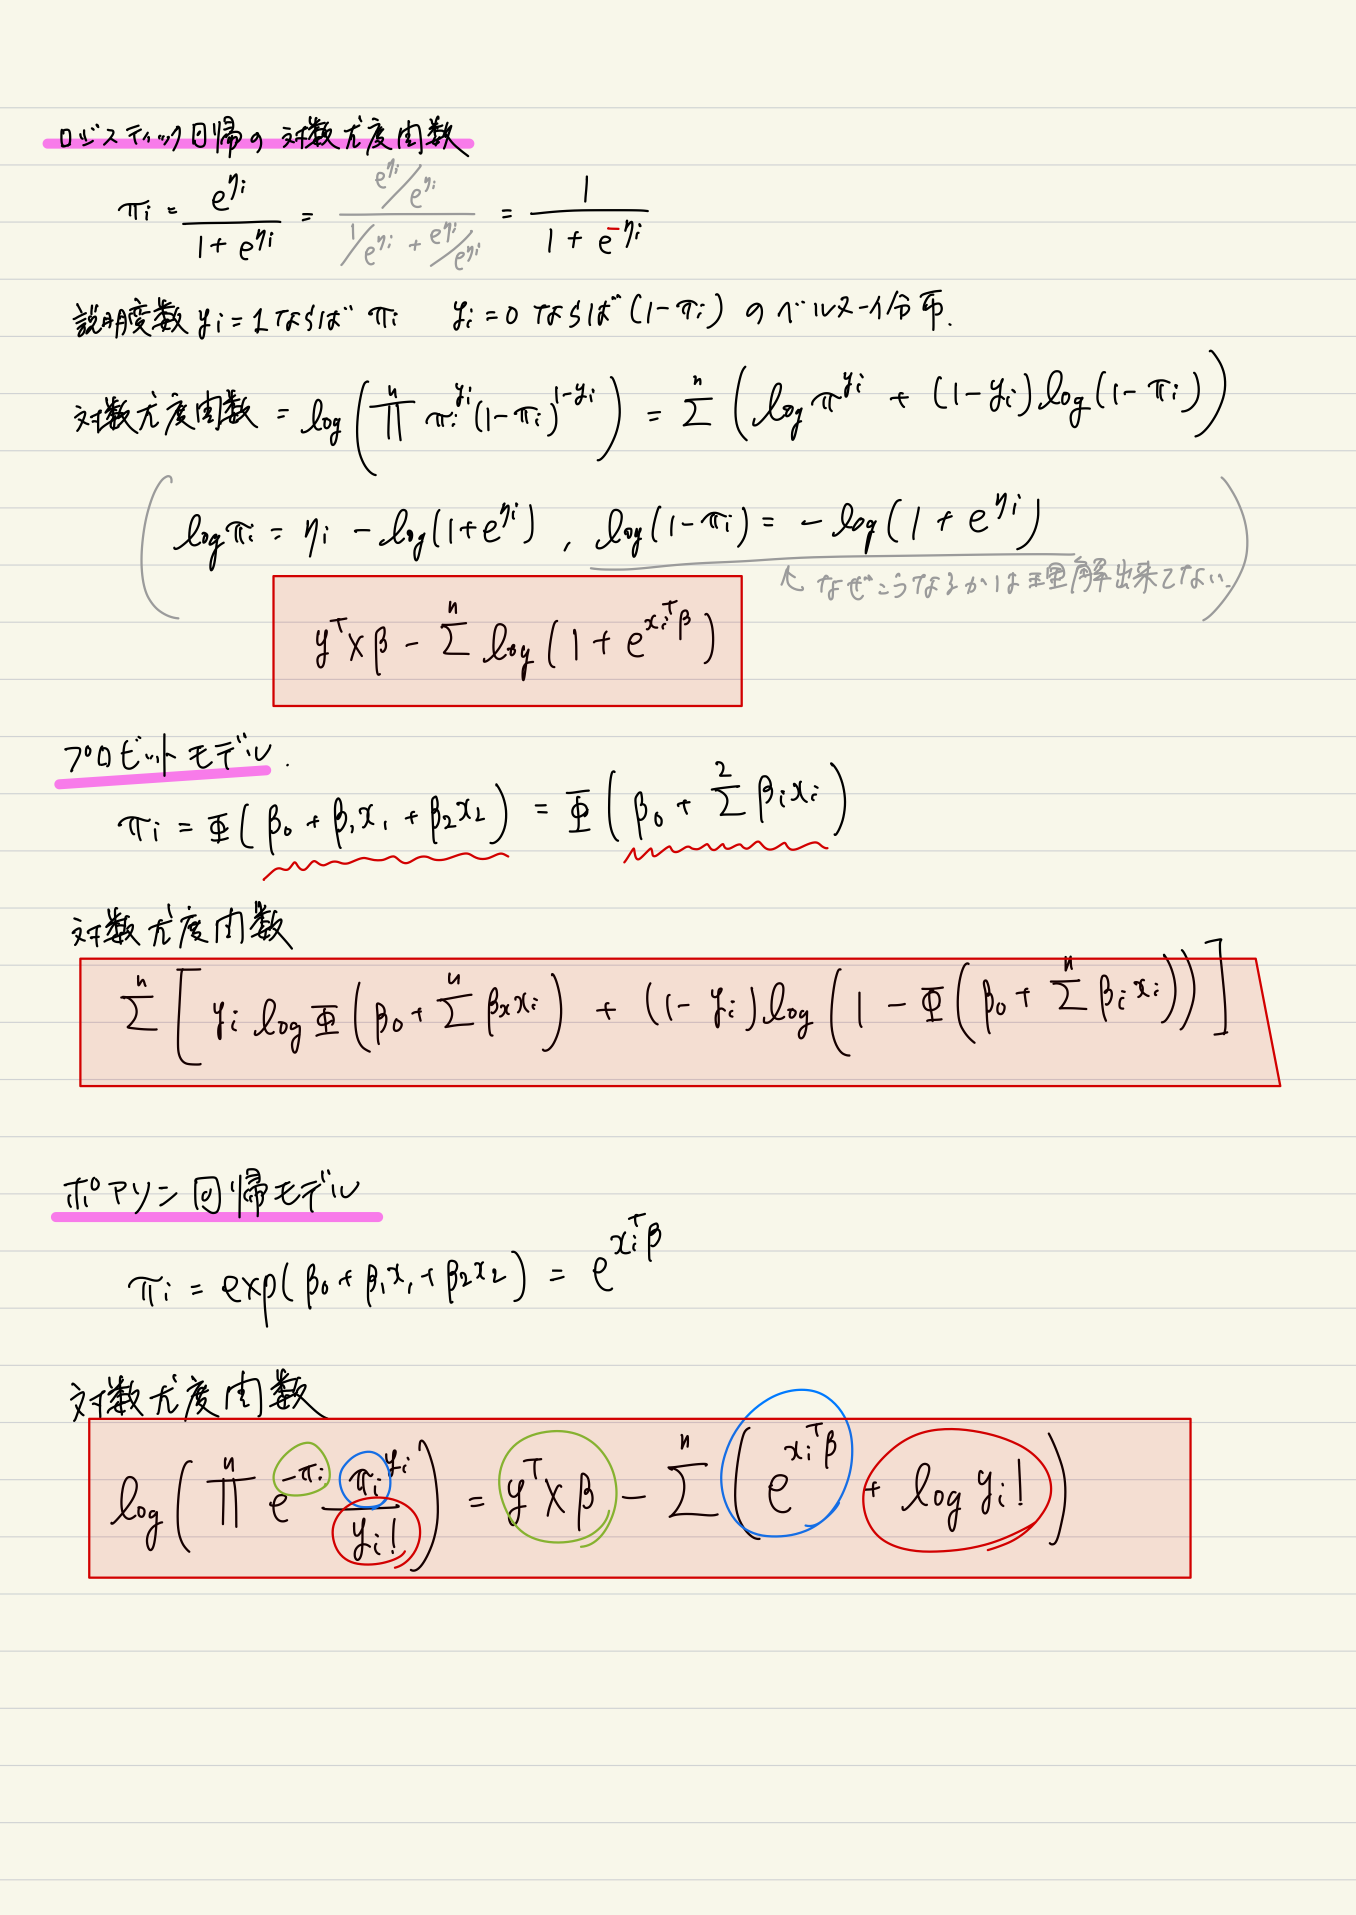 ロジスティック回帰の対数尤度関数
πi = e^ηi / (1 + e^ηi) = (e^ηi/e^ηi) / (1/e^ηi + e^ηi/e^ηi) = 1 / (1 + e^-ηi)
説明変数 yi = 1 ならば πi  yi = 0 ならば (1-πi) のベルヌーイ分布.
対数尤度関数 = log(∏^n πi^yi (1-πi)^1-yi) = Σ^n (log π^yi + (1-yi) log(1-πi))
(log πi = ηi - log(1+e^ηi), log(1-πi) = -log(1 + e^ηi)
↑ なぜこうなるかは理解出来てない.)
y^T X β - Σ^n log(1 + e^xi^Tβ)
プロビットモデル.
πi = Φ(β0 + β1x1 + β2x2) = Φ(β0 + Σ^2 βixi)
対数尤度関数
Σ^n [yi log Φ(β0 + Σ^n βxxi) + (1-yi) log(1 - Φ(β0 + Σ^n βixi))]
ポアソン回帰モデル
πi = exp(β0 + β1x1 + β2x2) = e^xi^Tβ
対数尤度関数
log(∏^n e^-πi πi^yi / yi!) = y^T X β - Σ^n (e^xi^Tβ + log yi!)